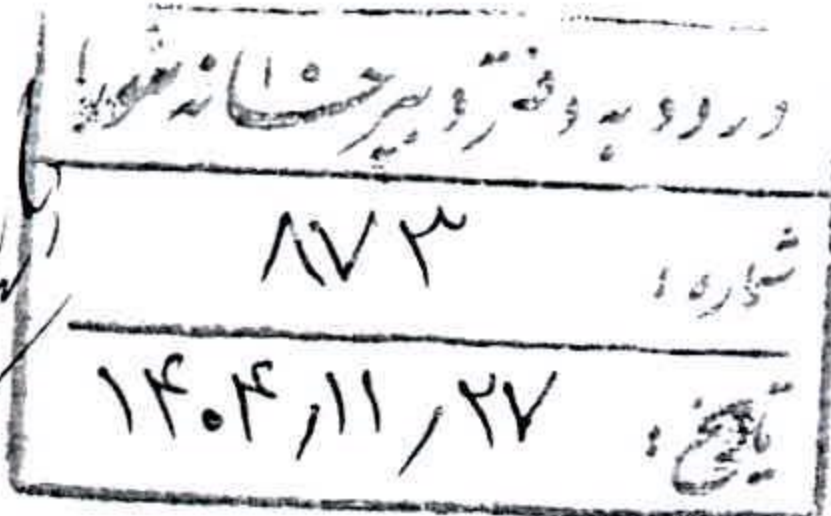 ورود به دفتر دبیرخانه شورا
شماره : ۸۷۳
تاریخ : ۱۴۰۴,۱۱,۲۷